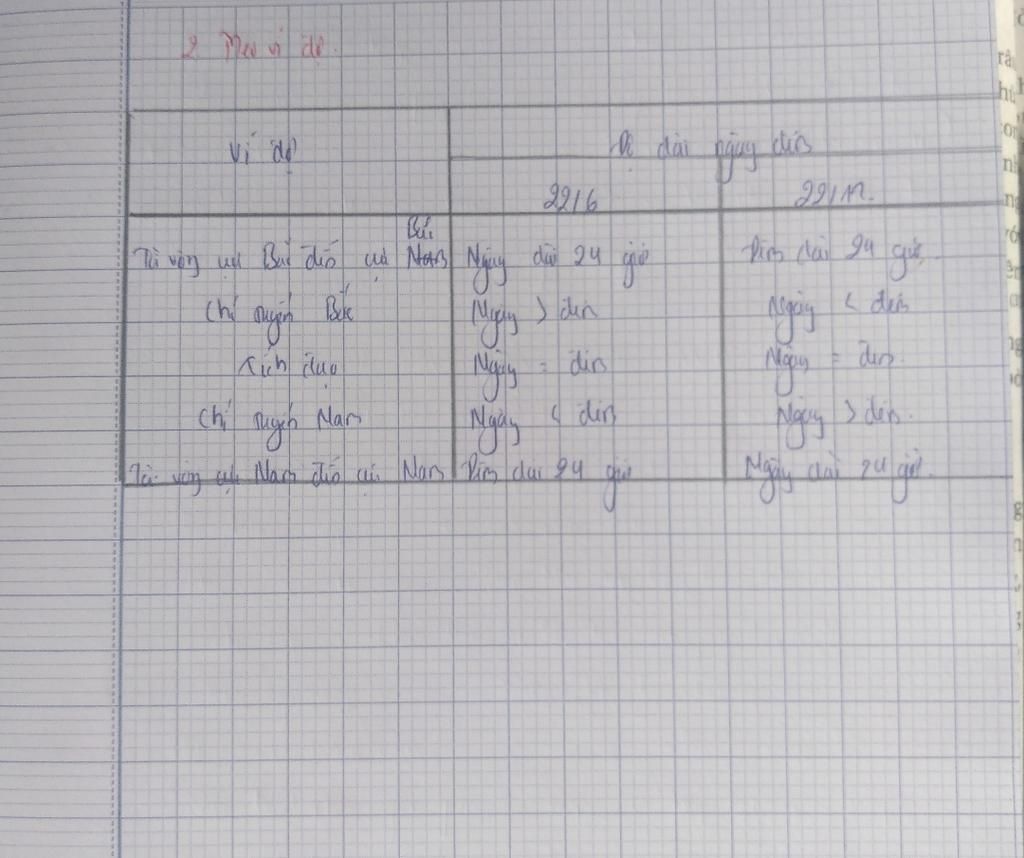 2. Theo vĩ độ.
Vĩ độ
Độ dài ngày đêm
22/6
22/12.
Từ vòng cực Bắc đến cực Bắc
Ngày dài 24 giờ
Đêm dài 24 giờ.
Chí tuyến Bắc
Ngày > đêm
Ngày < đêm
Xích đạo
Ngày = đêm
Ngày = đêm.
Chí tuyến Nam
Ngày < đêm
Ngày > đêm.
Từ vòng cực Nam đến cực Nam
Đêm dài 24 giờ
Ngày dài 24 giờ.